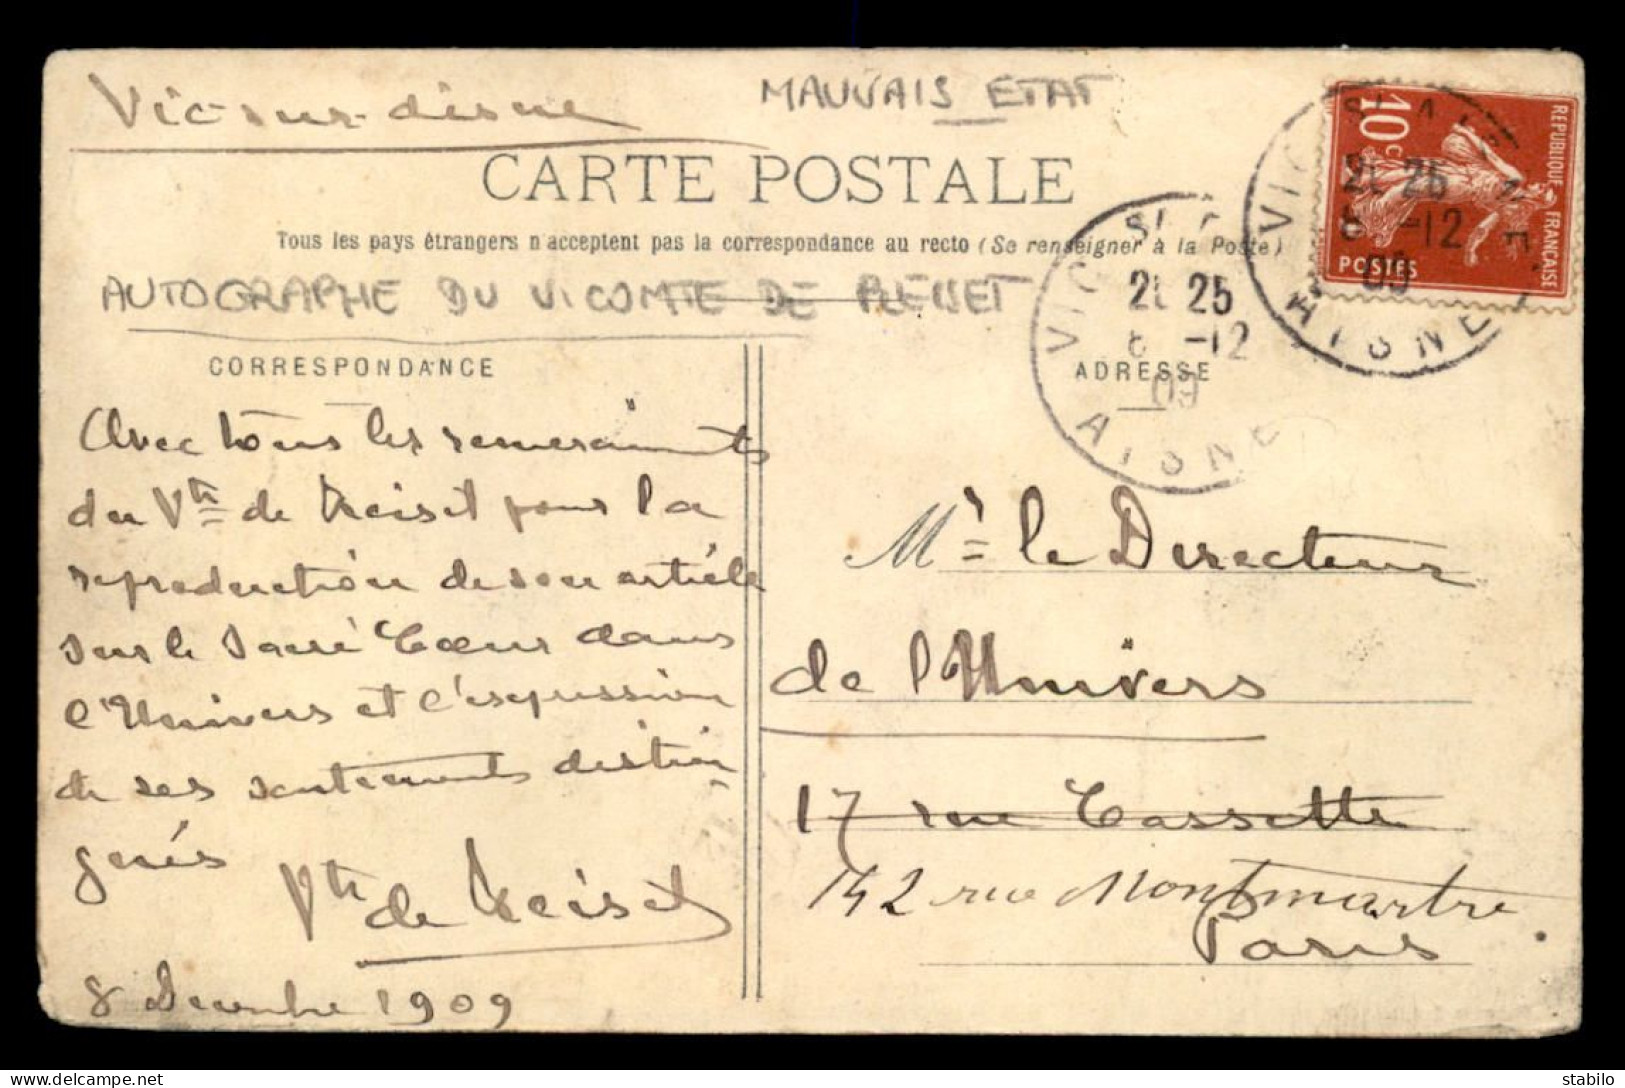 Vic-sur-Aisne
MAUVAIS ETAT
CARTE POSTALE
Tous les pays étrangers n'acceptent pas la correspondance au recto (Se renseigner à la Poste)
AUTOGRAPHE DU VICOMTE DE REISET
CORRESPONDANCE
Avec tous les remerciements
du Vte de Reiset pour la
reproduction de son article
sur le Sacré Cœur dans
l'Univers et l'expression
de ses sentiments distin
gués
Vte de Reiset
8 Décembre 1909
REPUBLIQUE FRANÇAISE
10c
POSTES
VIC
AISNE
21 25
8 -12
09
VIC
AISNE
21 25
8 -12
09
ADRESSE
Mr le Directeur
de l'Univers
17 rue Cassette
142 rue Montmartre
Paris
stabilo
delcampe.net